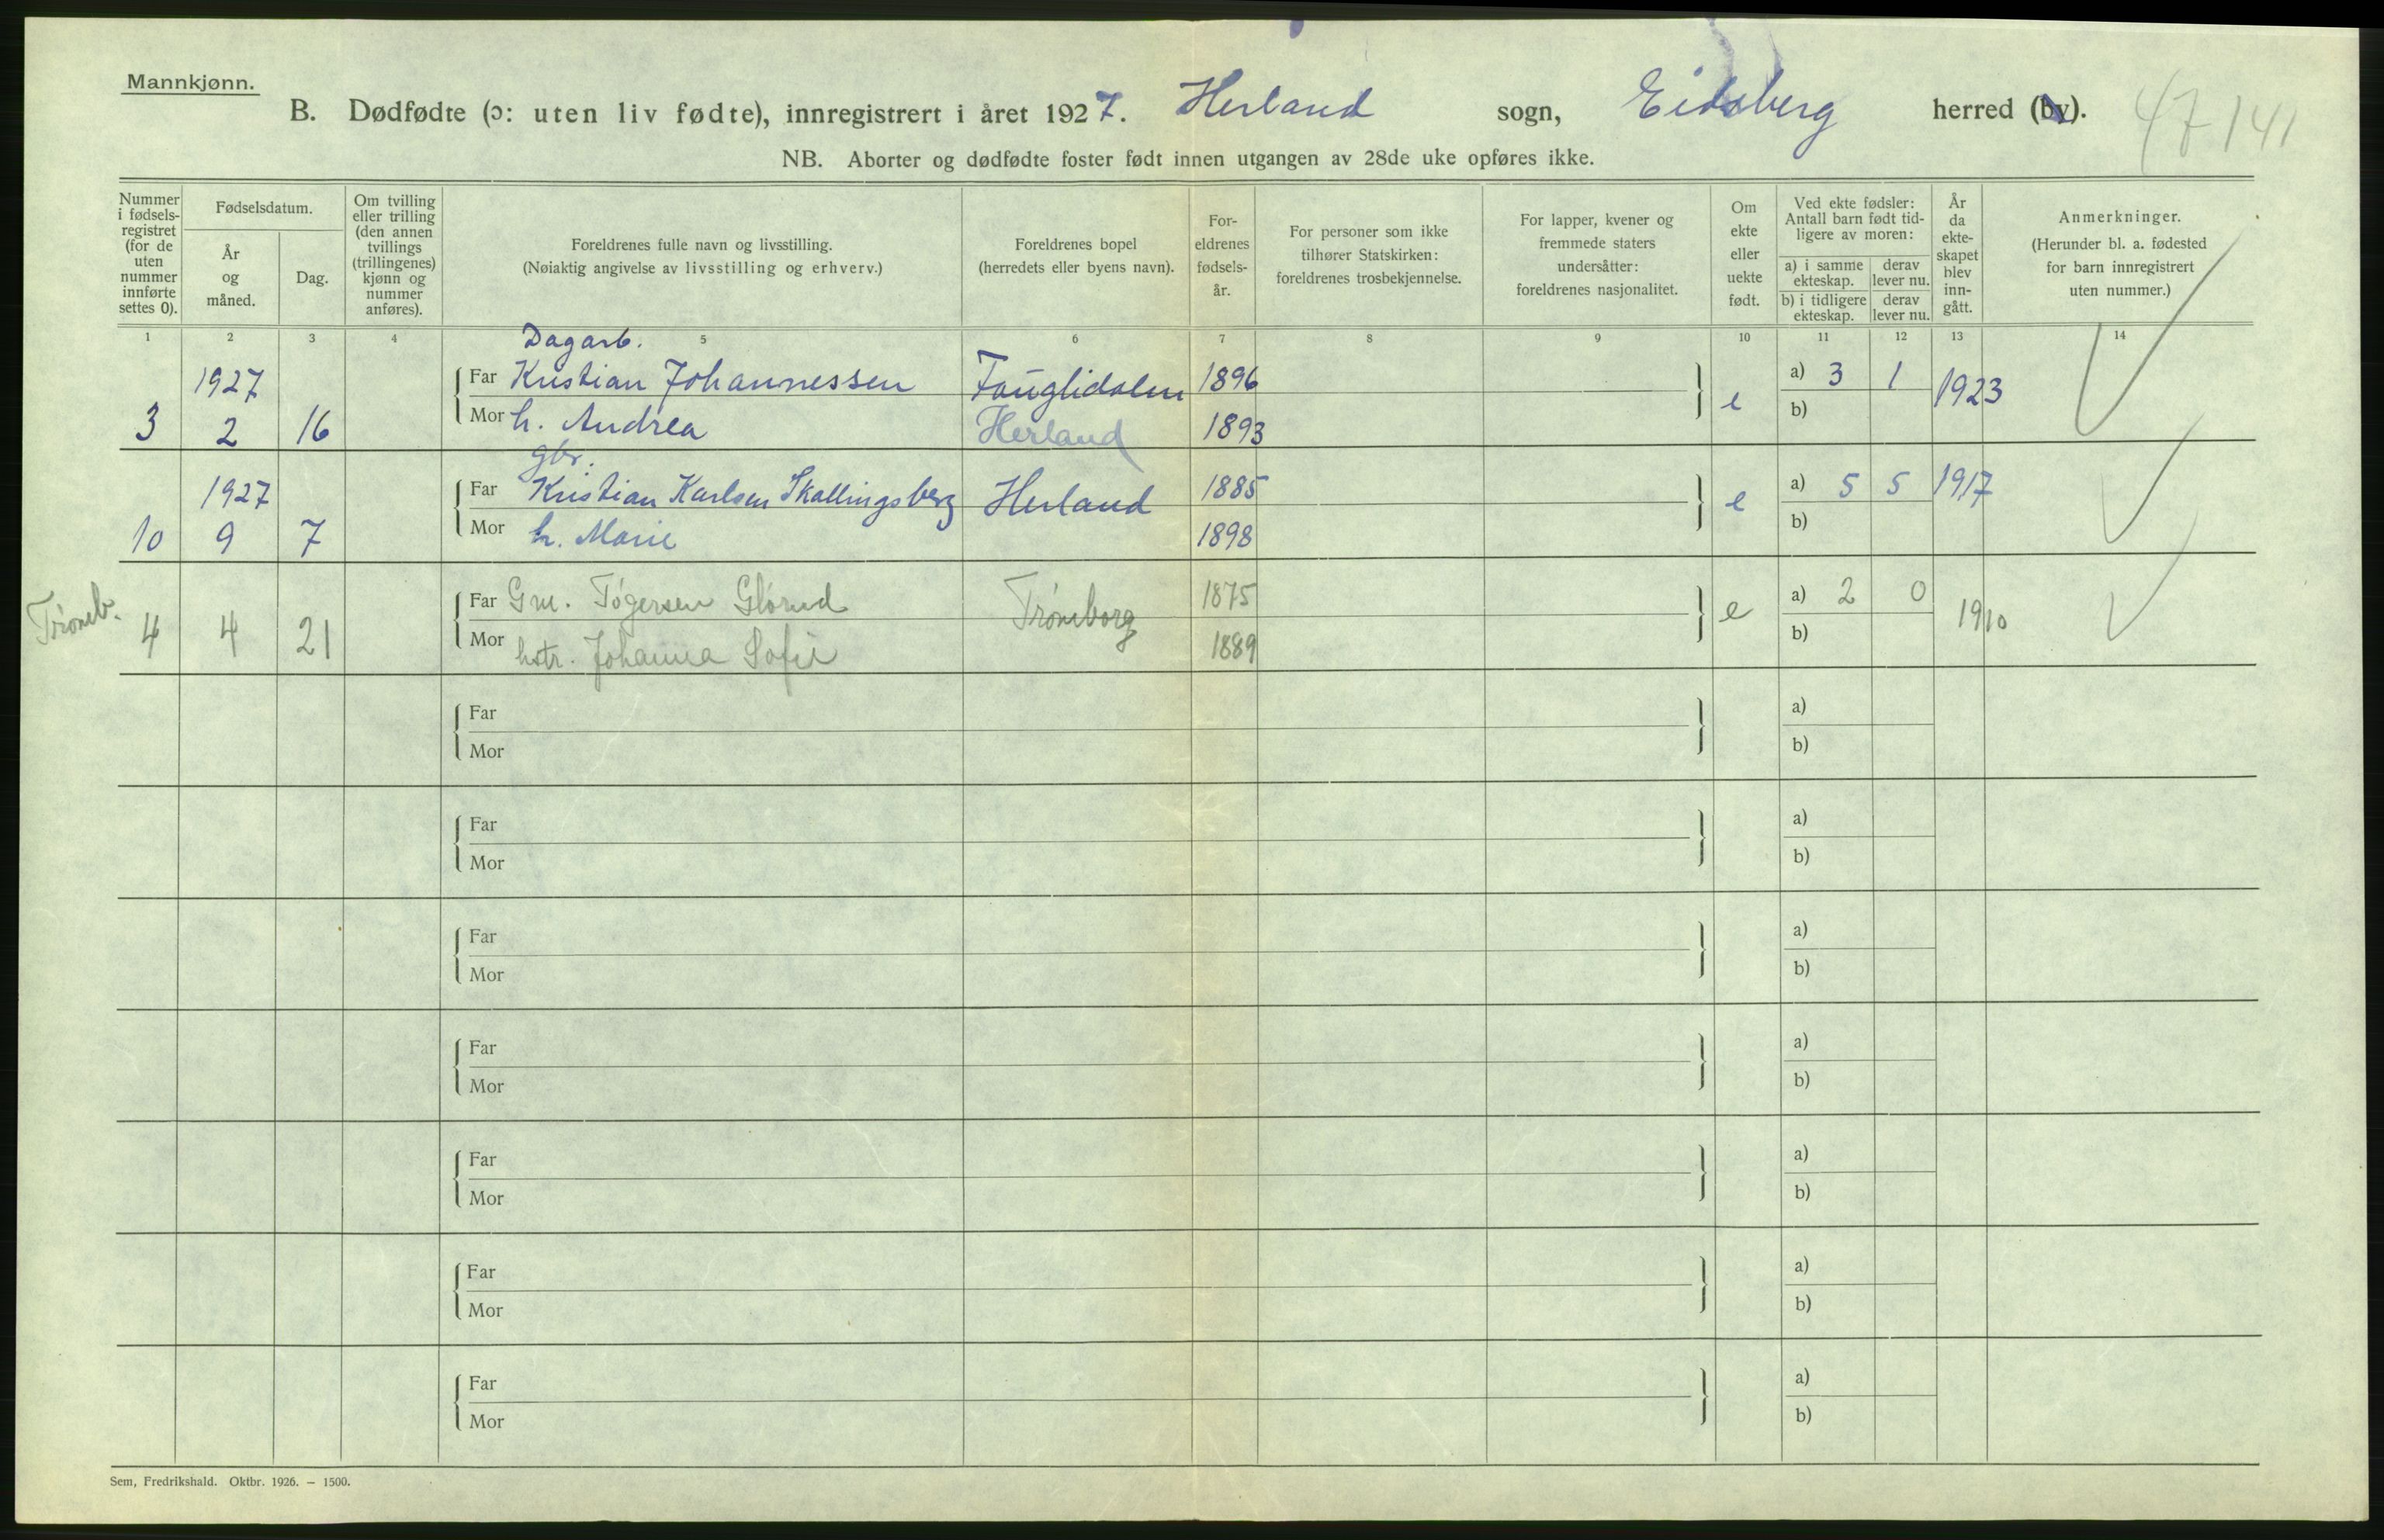 Mannkjønn.
B. Dødfødte (ɔ: uten liv fødte), innregistrert i året 1927. Herland sogn, Eidsberg herred (by). 47141
NB. Aborter og dødfødte foster født innen utgangen av 28de uke opføres ikke.
Nummer i fødsels-registret (for de uten nummer innførte settes 0).
Fødselsdatum.
År og måned.
Dag.
Om tvilling eller trilling (den annen tvillings (trillingenes) kjønn og nummer anføres).
Foreldrenes fulle navn og livsstilling.
(Nøiaktig angivelse av livsstilling og erhverv.)
Foreldrenes bopel
(herredets eller byens navn).
For-eldrenes fødsels-år.
For personer som ikke tilhører Statskirken: foreldrenes trosbekjennelse.
For lapper, kvener og fremmede staters undersåtter: foreldrenes nasjonalitet.
Om ekte eller uekte født.
Ved ekte fødsler: Antall barn født tid-ligere av moren:
a) i samme ekteskap. derav lever nu.
b) i tidligere ekteskap. derav lever nu.
År da ekte-skapet blev inn-gått.
Anmerkninger.
(Herunder bl. a. fødested for barn innregistrert uten nummer.)
1 2 3 4 5 6 7 8 9 10 11 12 13 14
Dagarb.
1927 Far Kristian Johannessen 1896 a) 3 1 1923
3 2 16 Mor h. Andrea Herland 1893 e b)
gbr.
1927 Far Kristian Karlsen Skallingsberg Herland 1885 e a) 5 5 1917
10 9 7 Mor h. Marie 1898 b)
Trømb. Far Gm. Togersen Glørud Trømborg 1875 e a) 2 0 1910
4 4 21 Mor hstr. Johanna Sofie 1889 b)
Far a)
Mor b)
Far a)
Mor b)
Far a)
Mor b)
Far a)
Mor b)
Far a)
Mor b)
Far a)
Mor b)
Far a)
Mor b)
Sem, Fredrikshald. Oktbr. 1926. — 1500.